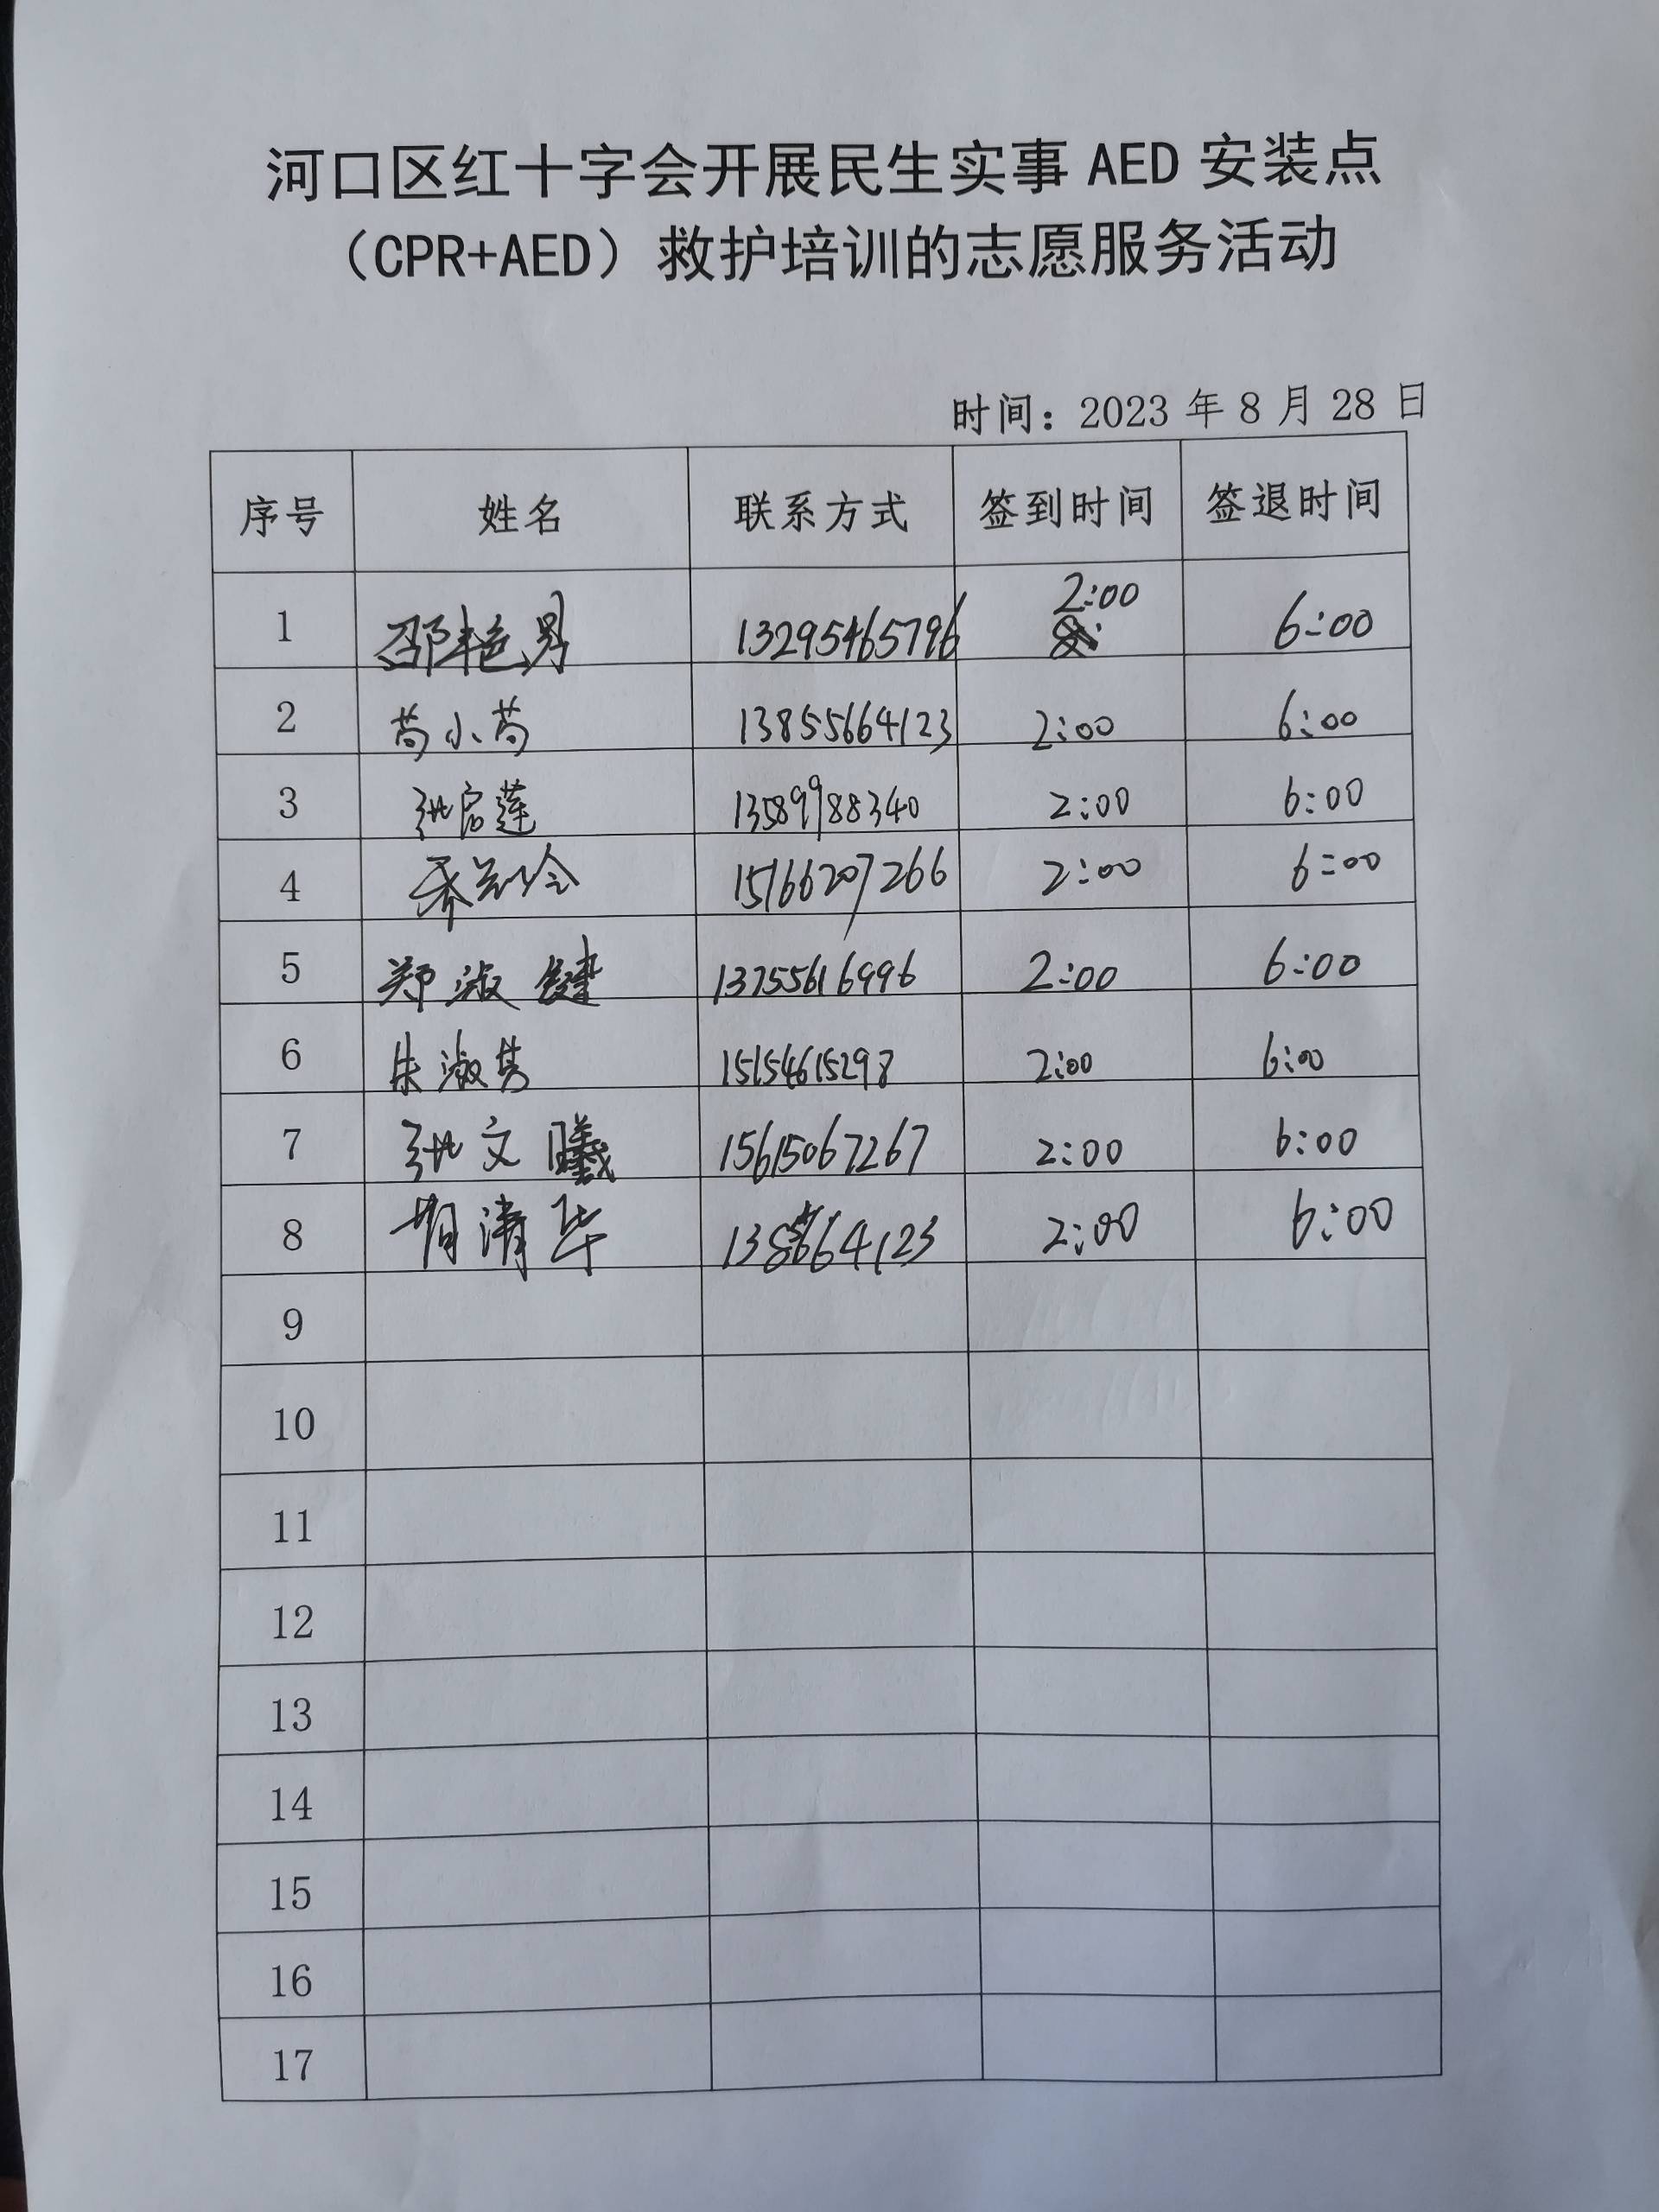 河口区红十字会开展民生实事 AED 安装点
（CPR+AED）救护培训的志愿服务活动
时间：2023 年 8 月 28 日
序号 姓名 联系方式 签到时间 签退时间
1 邵艳男 13295465796 2:00 6:00
2 苟小苟 13855664123 2:00 6:00
3 张启莲 13589988340 2:00 6:00
4 乔兰玲 15166207266 2:00 6:00
5 郑淑键 13755616996 2:00 6:00
6 朱淑芳 15154615298 2:00 6:00
7 张文曦 15615067267 2:00 6:00
8 清华 2:00 6:00
9
10
11
12
13
14
15
16
17